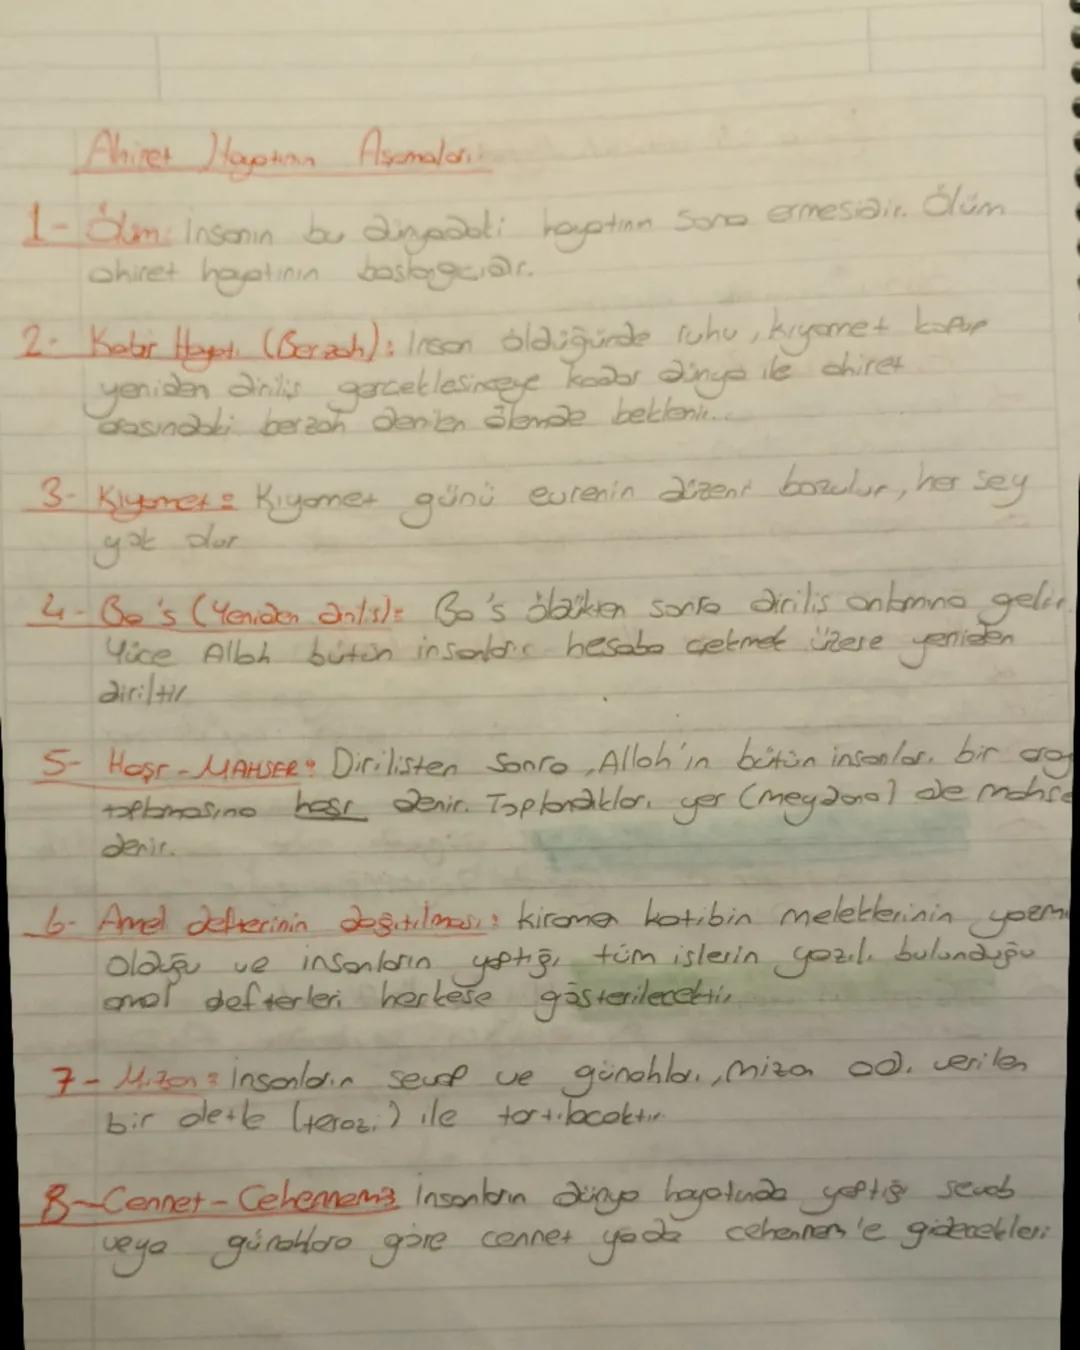 Ahiret Hayatının Aşamaları:
1- Ölüm: İnsanın bu dünyadaki hayatının sona ermesidir. Ölüm
ahiret hayatının başlangıcıdır.
2- Kabir Hayatı (Berzah): İnsan öldüğünde ruhu, kıyamet kopup
yeniden diriliş gerçekleşinceye kadar dünya ile ahiret
arasındaki berzah denilen âlemde beklenir...
3- Kıyamet: Kıyamet günü evrenin düzeni bozulur, her şey
yok olur
4- Ba's (Yeniden diriliş): Ba's öldükten sonra diriliş anlamına gelir.
Yüce Allah bütün insanları hesaba çekmek üzere yeniden
diriltir
5- Haşr - MAHŞER: Dirilişten sonra, Allah'ın bütün insanları bir
toplamasına haşr denir. Toplandıkları yer (meydana) de
denir.
6- Amel defterinin dağıtılması: kiramen katibin meleklerinin
olduğu ve insanların yaptığı tüm işlerin yazılı bulunduğu
amel defterleri herkese gösterilecektir.
7- Mizan: İnsanların sevap ve günahları, mizan adı verilen
bir aletle (terazi) ile tartılacaktır.
8- Cennet - Cehennem: İnsanların dünya hayatında yaptığı sevab
veya günahlara göre cennet yada cehennem'e gidecekleri